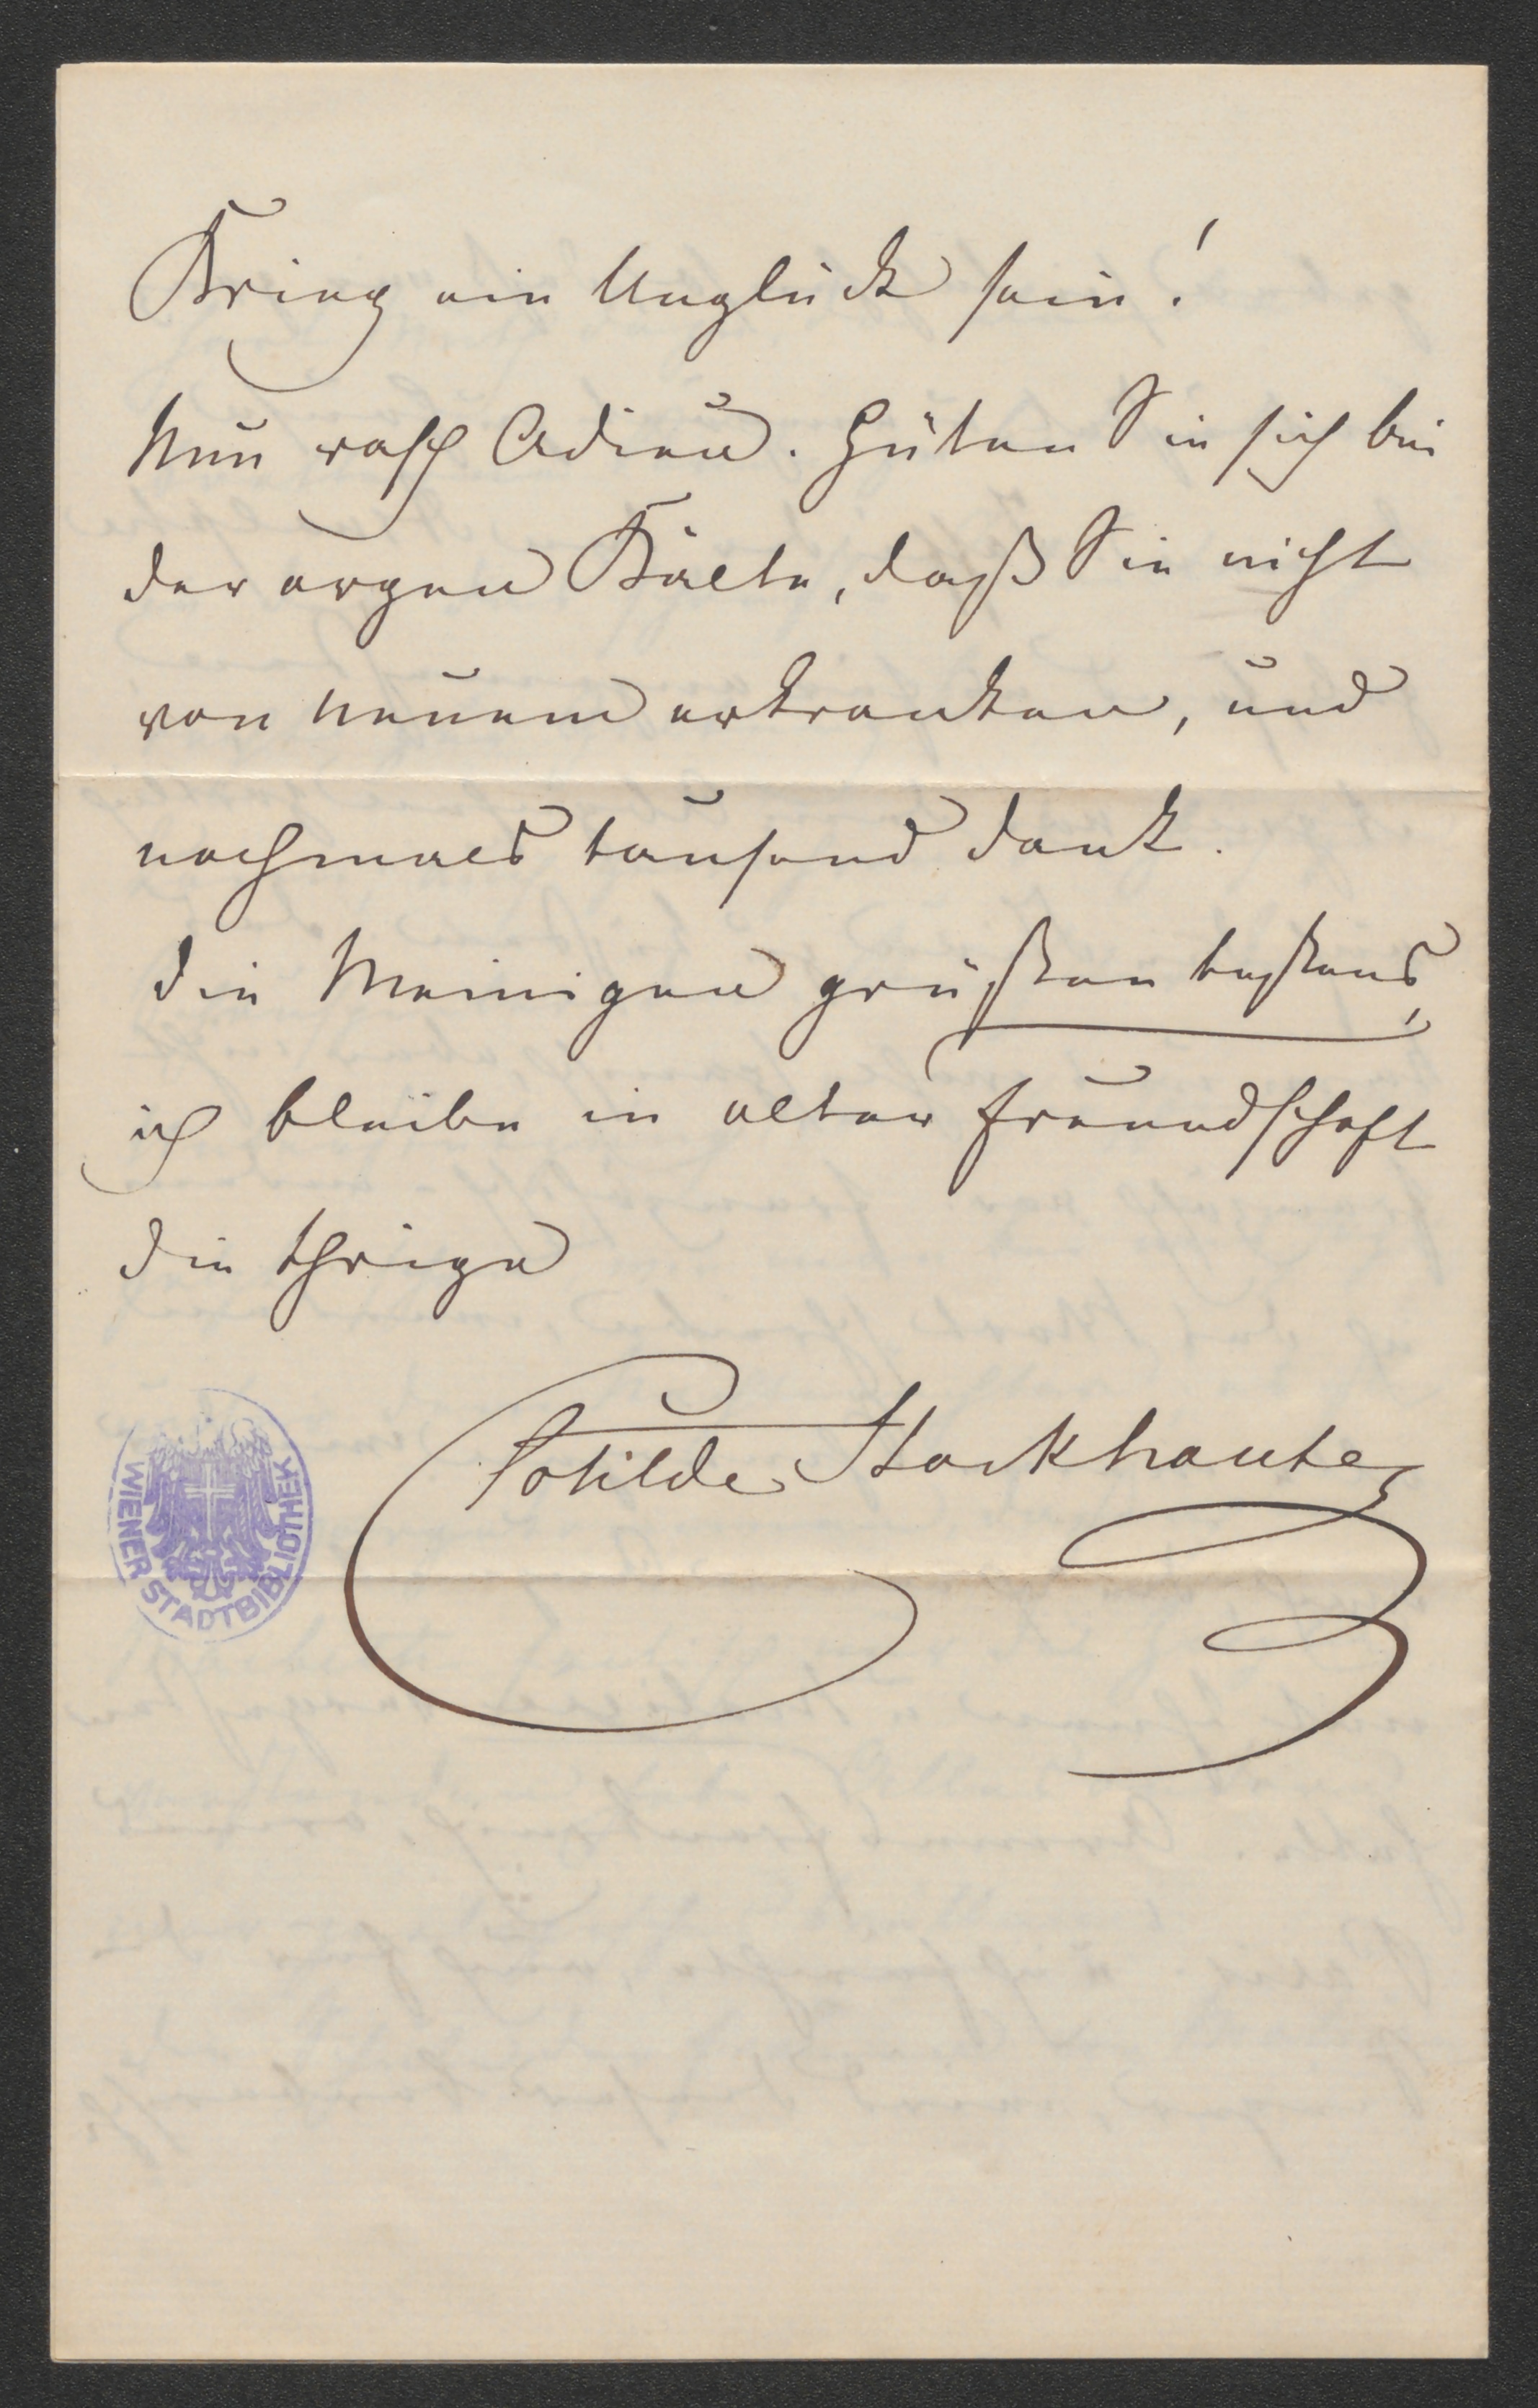 Krieg ein Unglück sein!
Nun rasch Adieu. Hüten Sie sich bei
der argen Kälte, daß Sie nicht
von neuem erkranken, und
nochmals tausend Dank.
Die Meinigen grüßen bestens,
ich bleibe in alter Freundschaft
die Ihrige
Clotilde Stockhauser
WIENER STADTBIBLIOTHEK